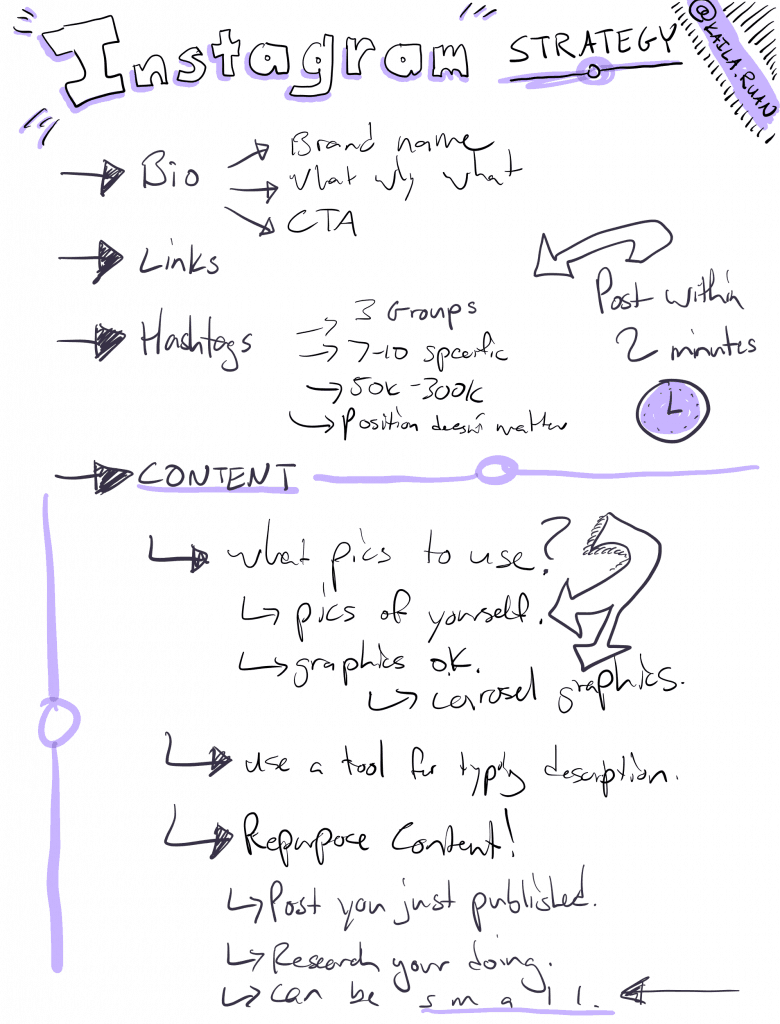 Instagram STRATEGY
@KAILA.RUAN
Bio
Brand name
What why what
CTA
Links
Hashtags
3 Groups
7-10 specific
50k-300k
Position doesn't matter
Post within
2 minutes
CONTENT
what pics to use?
pics of yourself.
graphics ok.
carosel graphics.
use a tool for typing description.
Repurpose Content!
Post you just published.
Research your doing.
can be small.